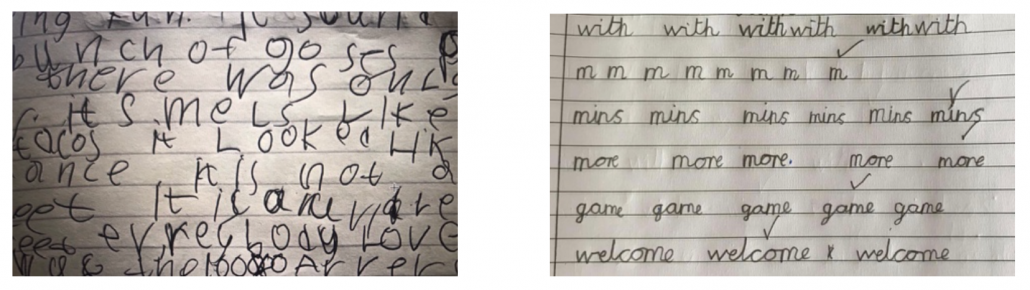 bunch of go ses
there was onl
it s me Ls Like
tacos It Look ed LIK
ance It is not a
get It is
everybody Love
with with with with with with
m m m m m m m m
mins mins mins mins mins mins
more more more. more more
game game game game game
welcome welcome x welcome